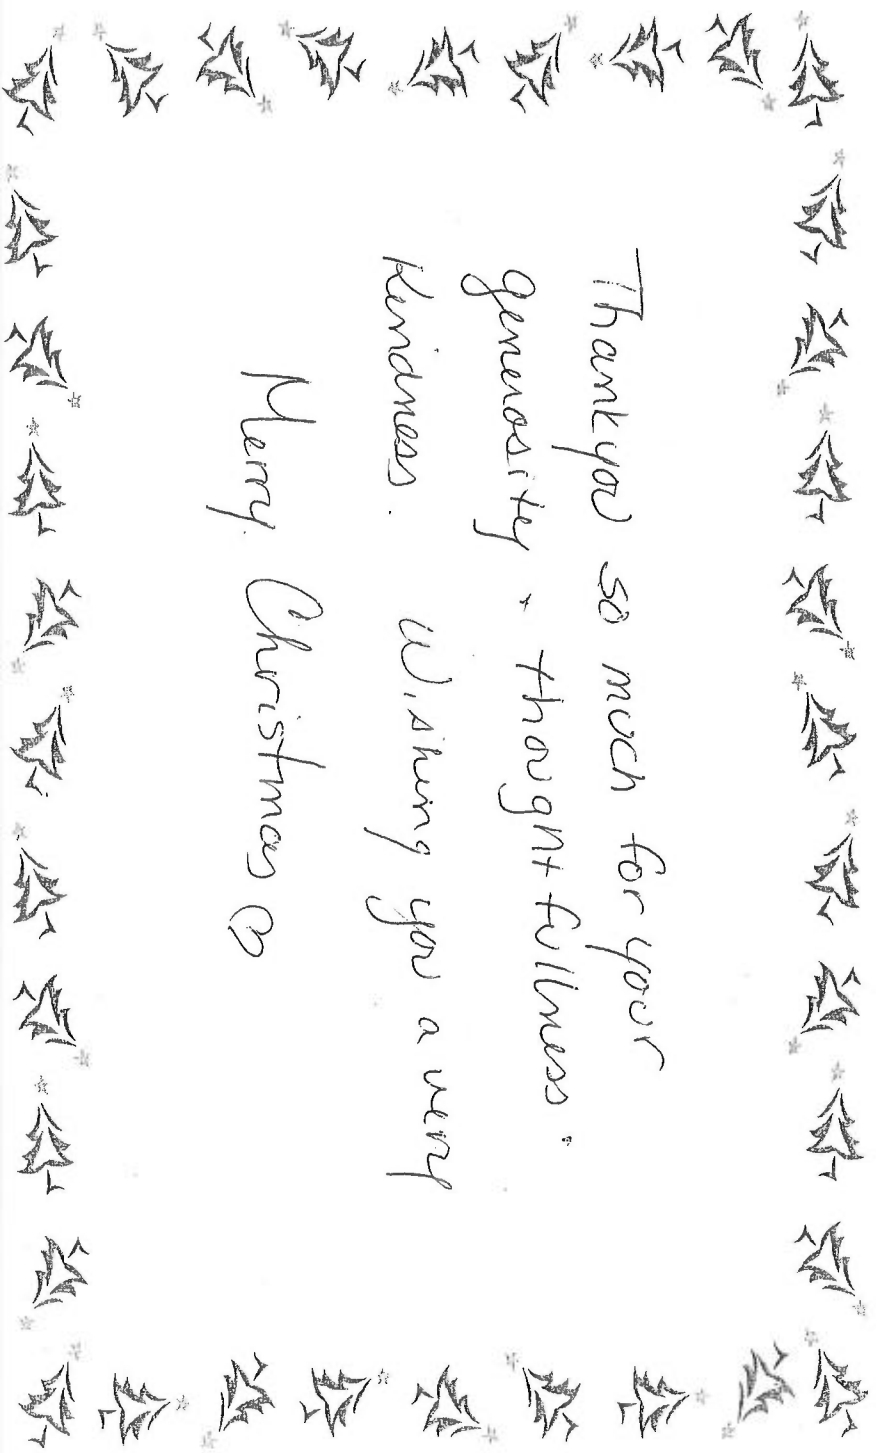 Thankyou so much for your
generosity + thoughtfullness.
Kindness. Wishing you a very
Merry Christmas ♡